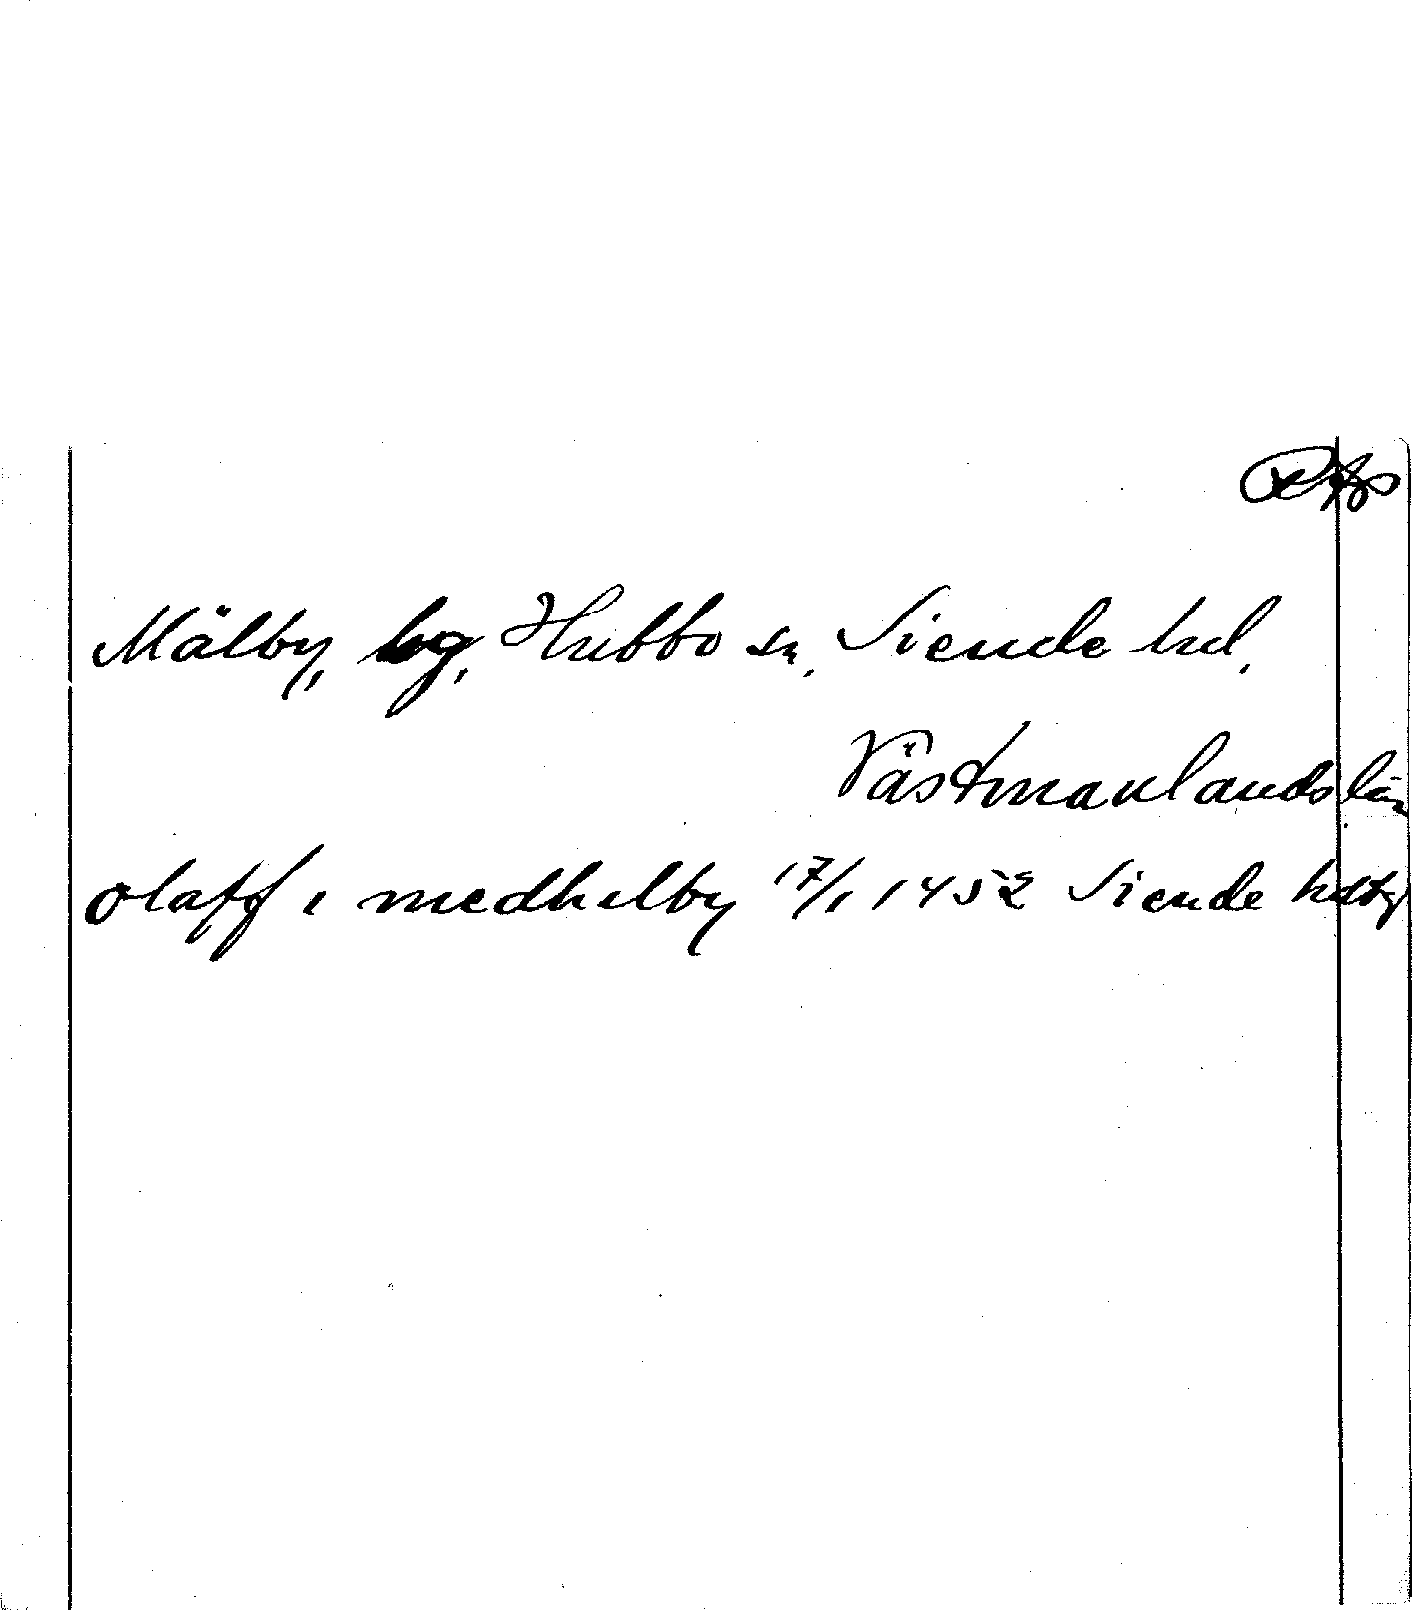 Mälby, by, Hubbo sn. Siende hd.
Västmanlands län
olaff i medhelby 17/1 1452 Siende hdtg